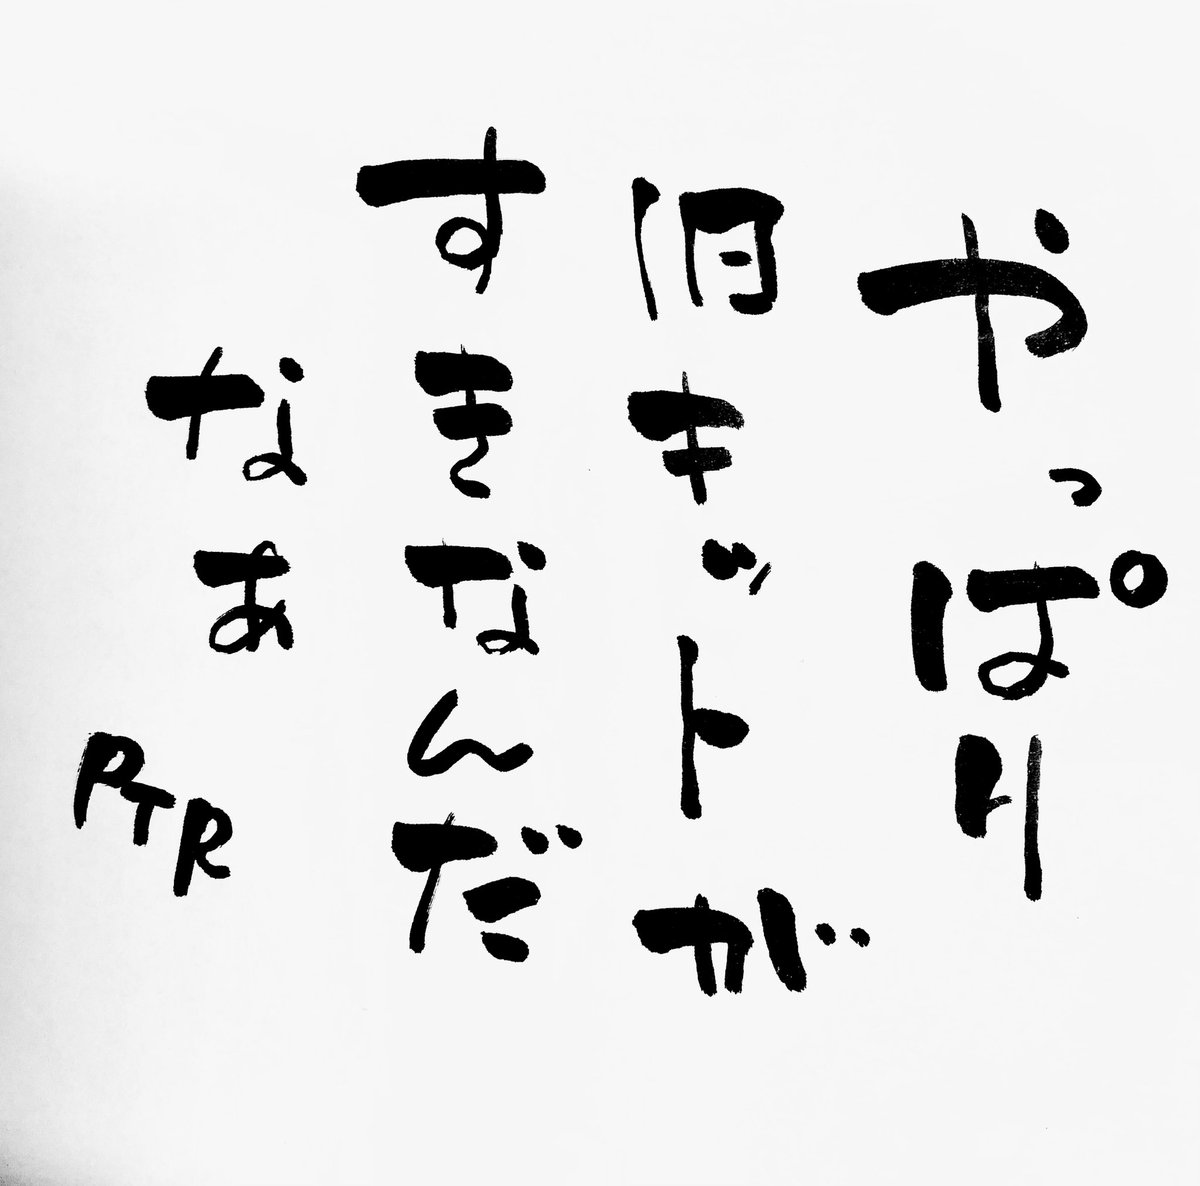 やっぱり
旧キットが
すきなんだ
なあ
PTR